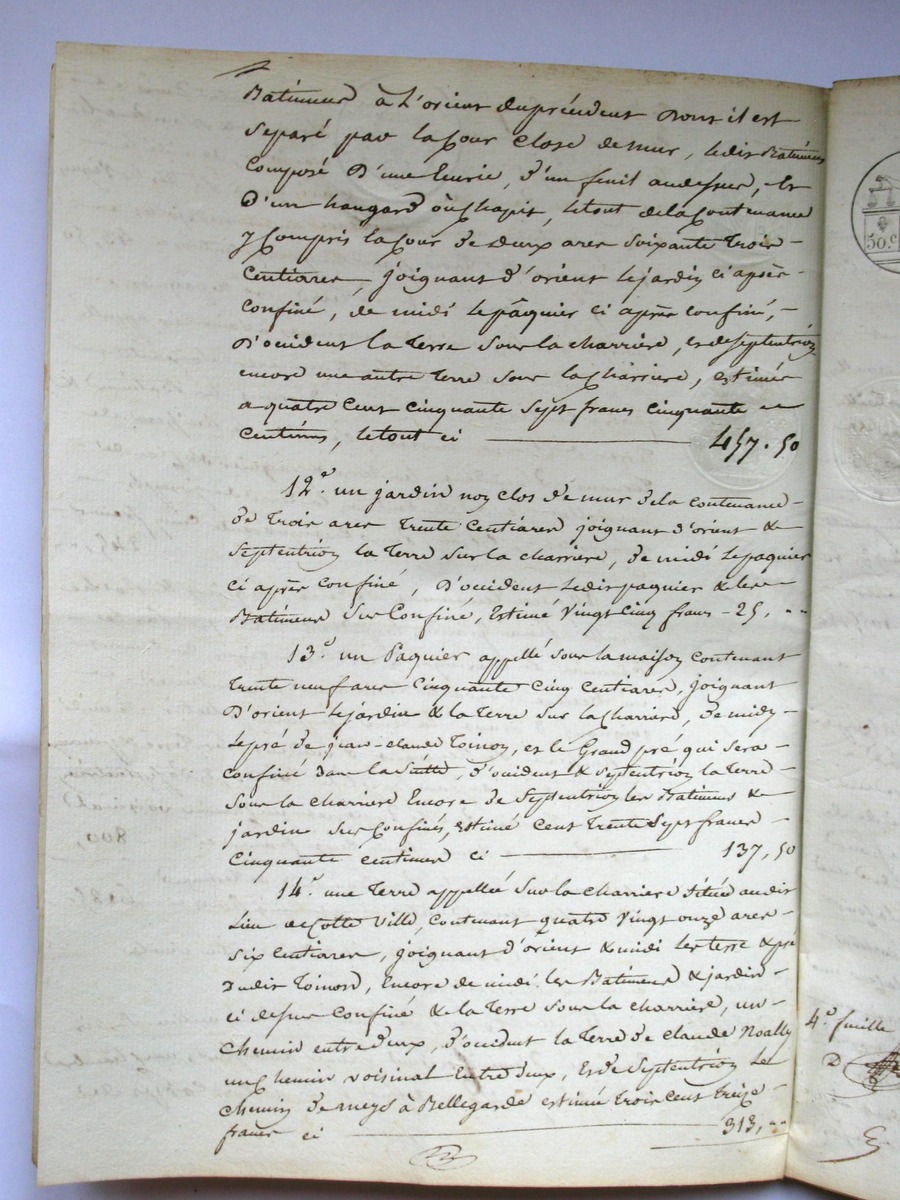 Batimens à L'orient du précédent Dont il est
separé par la Cour close de mur, ledit Batimens
composé D'une Ecurie, d'un fenil au dessus, et
D'un hangard ou Chapit, le tout de la Contenance
y Compris la Cour de Deux ares soixante Trois
Centiares, joignant d'orient le jardin ci après
confiné, de midi le pâquier ci après confiné,
D'occident la Terre sous la charriere, et de septentrion
encore une autre Terre sous la Charriere, estimés
a quatre cent cinquante sept francs cinquante
centimes, le tout ci 457.50
12.° un jardin non clos de mur de la contenance
de Trois ares Trente Centiares joignant d'orient &
septentrion la Terre sur la charriere, de midi le paquier
ci après confiné, D'occident ledit paquier & les
Batimens sus Confiné, Estimé vingt cinq francs 25, ..
13.° un Paquier appellé sous la maison contenant
Trente neuf ares Cinquante cinq centiares, joignant
D'orient le jardin & la Terre sur la Charriere, de midy
le pré de jean-claude Toinon, et le Grand pré qui sera
confiné dans la Suitte, d'occident & septentrion la Terre
sous la charriere Encore de septentrion les Batimens &
jardin sus Confinés, estimé cent Trente Sept francs
cinquante centimes ci 137,50
14.° une Terre appellée sur la charriere située au dit
Lieu de Cotte Ville, contenant quatre vingt onze ares
six centiares, joignant d'orient & midi les terre & pré
dudit Toinon, Encore de midi les Batimens & jardin
ci dessus confiné & la Terre sous la charriere, un
chemin entre deux, d'occident la Terre de claude Noally
un Chemin voisinal Entre deux, Et de septentrion le
chemin de meys à Bellegarde estimé trois cent treize
francs ci 313, ..
50.c
4.° feuille